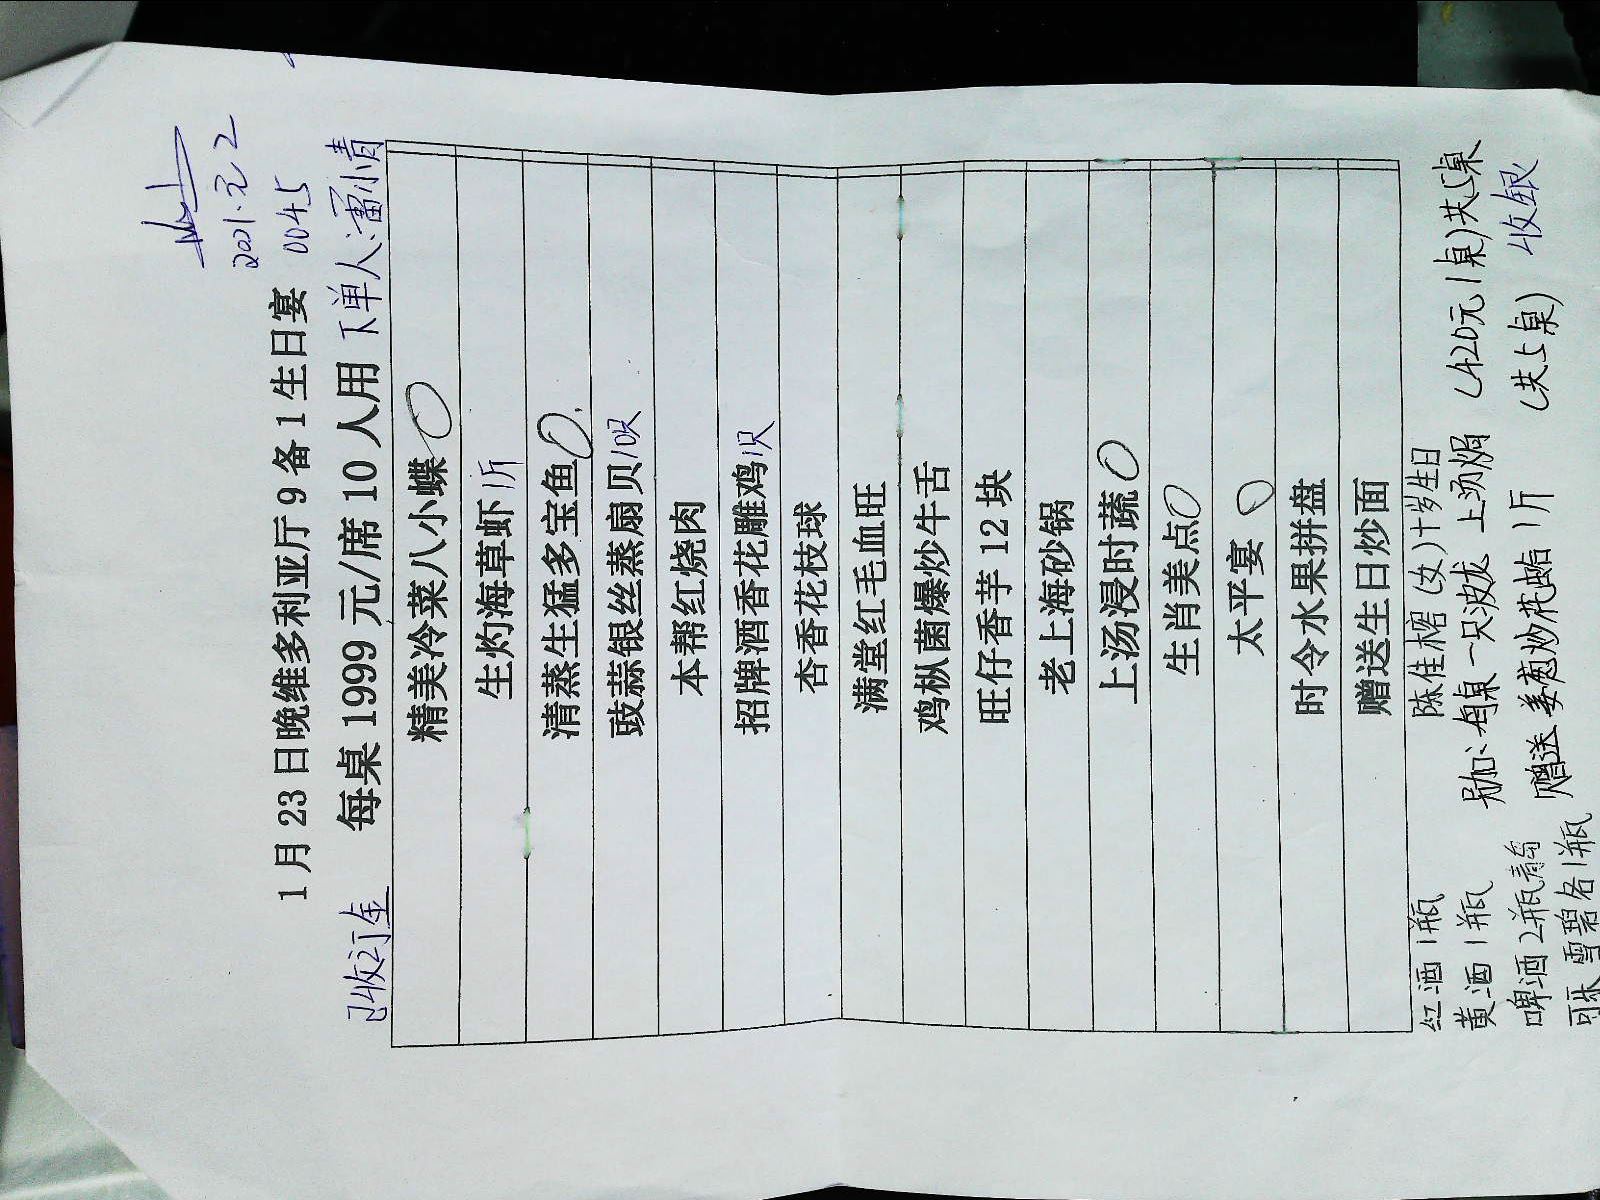 2001.元2
0045
1月23日晚维多利亚厅9备1生日宴
已收订金 每桌1999元/席10人用 下单人:潘小青
精美冷菜八小蝶
生灼海草虾1斤
清蒸生猛多宝鱼
豉蒜银丝蒸扇贝10只
本帮红烧肉
招牌酒香花雕鸡1只
杏香花枝球
满堂红毛血旺
鸡枞菌爆炒牛舌
旺仔香芋12块
老上海砂锅
上汤浸时蔬
生肖美点
太平宴
时令水果拼盘
赠送生日炒面
红酒1瓶 陈佳榕(女)十岁生日
黄酒1瓶 另加:每桌一只波龙 上汤焗 (420元1桌)共5桌
啤酒2瓶青岛 赠送姜葱炒花蛤1斤 (共5桌) 收银
雪碧各1瓶